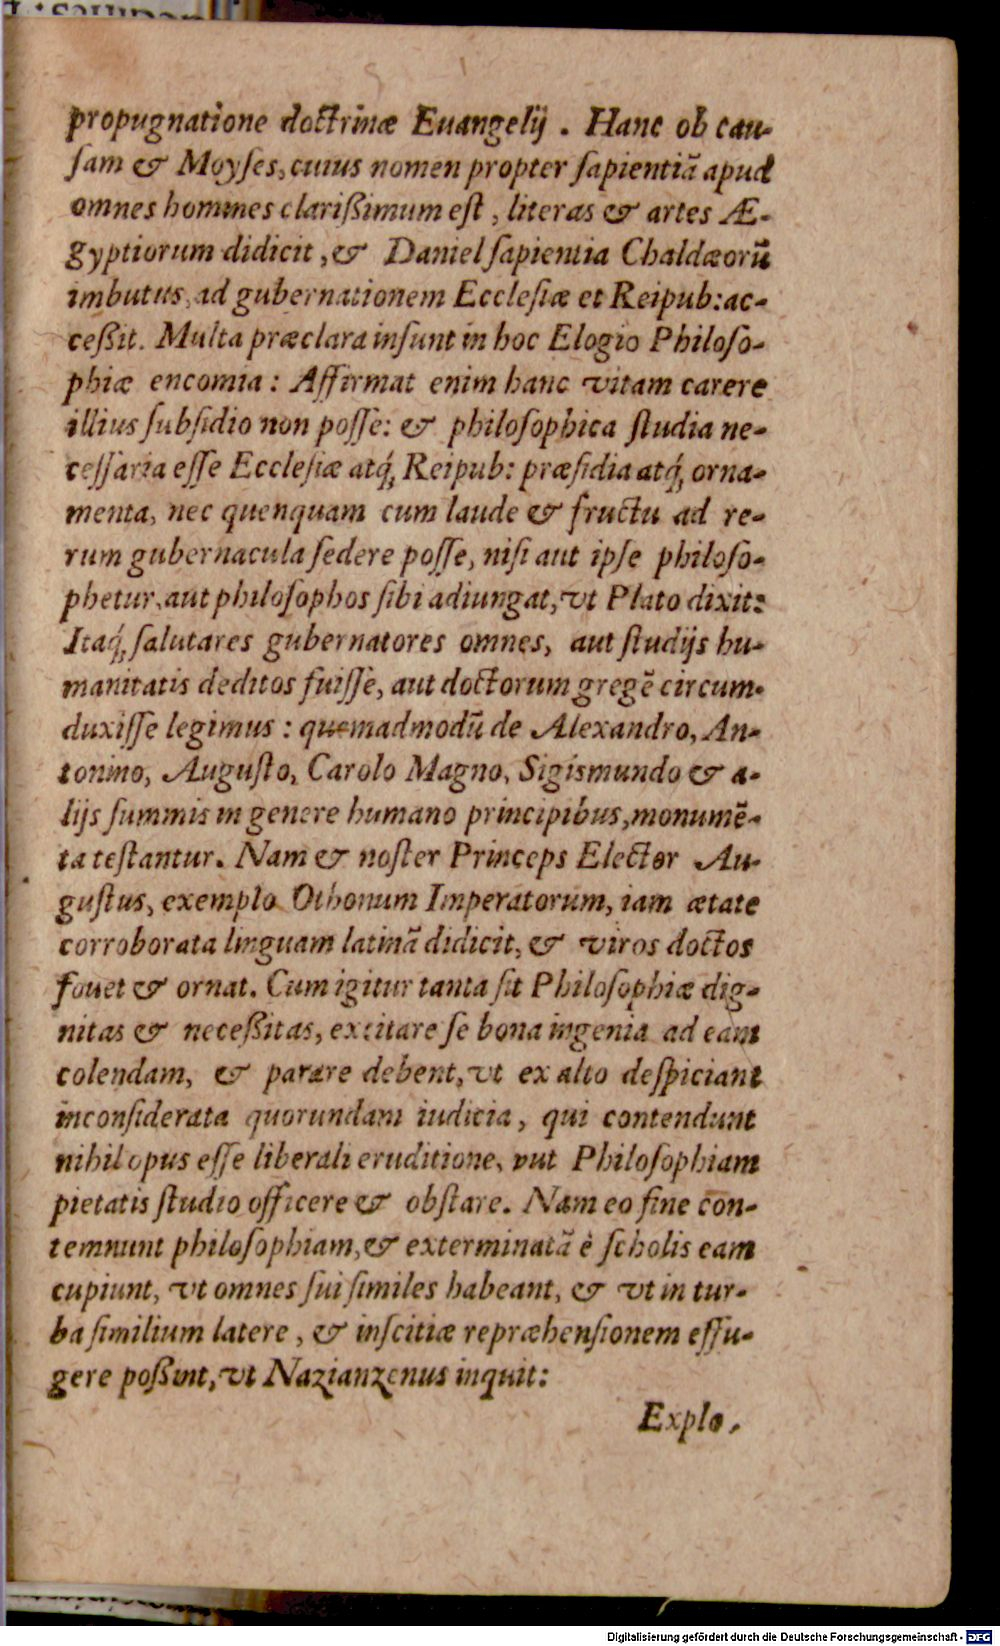 propugnatione doctrinæ Euangelij . Hanc ob cau-
ſam & Moyſes, cuius nomen propter ſapientiã apud
omnes homines clarißimum eſt , literas & artes Æ-
gyptiorum didicit , & Daniel ſapientia Chaldæorũ
imbutus, ad gubernationem Eccleſiæ et Reipub: ac-
ceßit. Multa præclara inſunt in hoc Elogio Philoſo-
phiæ encomia : Affirmat enim hanc vitam carere
illius ſubſidio non poſſe: & philoſophica ſtudia ne-
ceſſaria eſſe Eccleſiæ atq́ꝫ Reipub: præſidia atq́ꝫ orna-
menta, nec quenquam cum laude & fructu ad re-
rum gubernacula ſedere poſſe, niſi aut ipſe philoſo-
phetur, aut philoſophos ſibi adiungat, vt Plato dixit:
Itaq́ꝫ ſalutares gubernatores omnes, aut ſtudijs hu-
manitatis deditos fuiſſe, aut doctorum gregẽ circum-
duxiſſe legimus : quemadmodũ de Alexandro, An-
tonino, Auguſto, Carolo Magno, Sigismundo & a-
lijs ſummis in genere humano principibus, monumẽ-
ta teſtantur. Nam & noſter Princeps Elector Au-
guſtus, exemplo Othonum Imperatorum, iam ætate
corroborata linguam latinã didicit, & viros doctos
fouet & ornat. Cum igitur tanta ſit Philoſophiæ dig-
nitas & neceßitas, excitare ſe bona ingenia ad eam
colendam, & parare debent, vt ex alto deſpiciant
inconſiderata quorundam iudicia , qui contendunt
nihil opus eſſe liberali eruditione, aut Philoſophiam
pietatis ſtudio officere & obſtare. Nam eo fine con-
temnunt philoſophiam, & exterminatã è ſcholis eam
cupiunt, vt omnes ſui ſimiles habeant, & vt in tur-
ba ſimilium latere , & inſcitiæ repræhenſionem effu-
gere poßint, vt Nazianzenus inquit:
Explo,
Digitalisierung gefördert durch die Deutsche Forschungsgemeinschaft - DFG